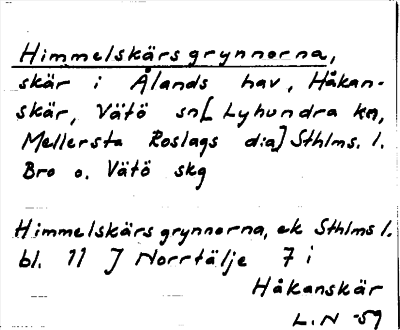 Himmelskärsgrynnorna,
skär i Ålands hav, Håkan-
skär, Vätö sn [Lyhundra kn,
Mellersta Roslags d:a] Sthlms. l.
Bro o. Vätö skg
Himmelskärsgrynnorna, ek Sthlms l.
bl. 11 J Norrtälje 7 i
Håkanskär
L.N -59